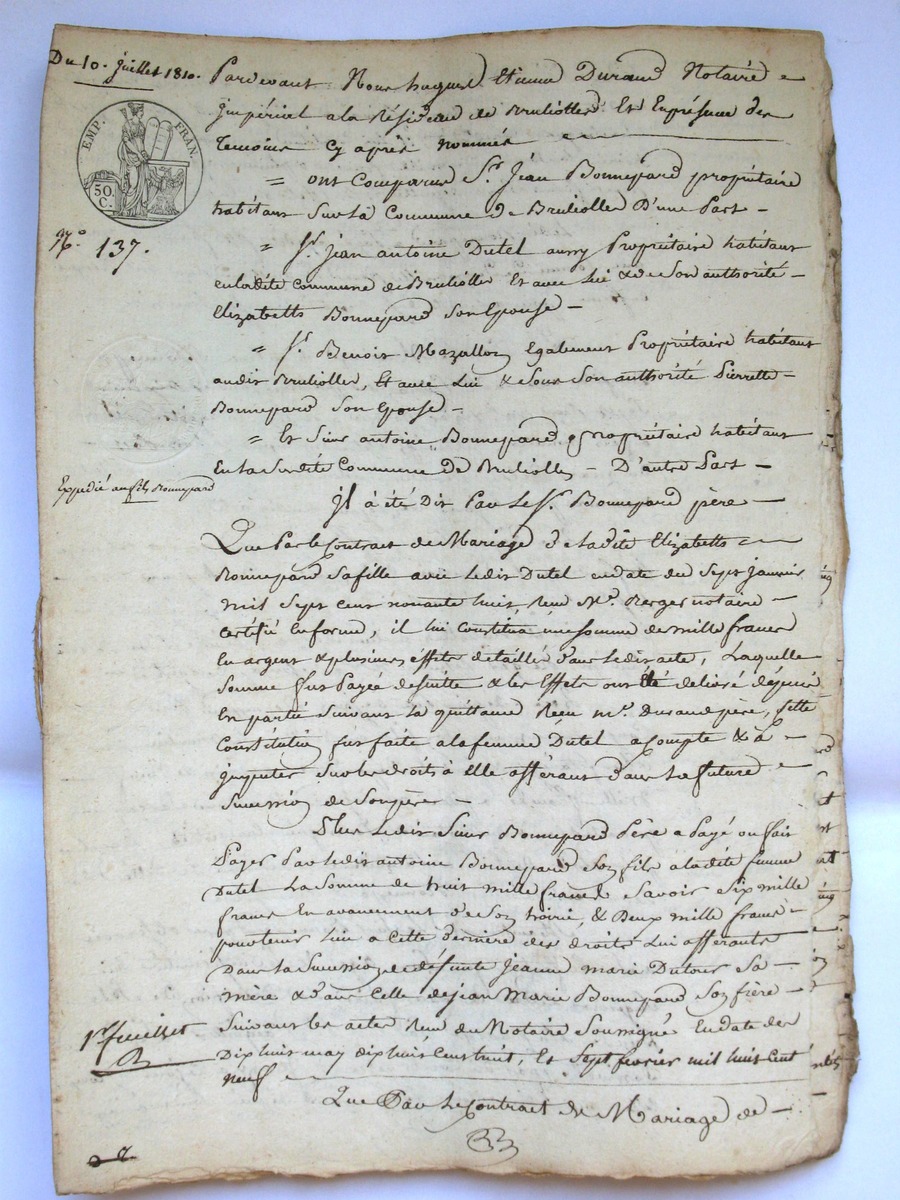 Du 10. Juillet 1810.
EMP. FRAN.
50. C.
N.° 137.
Expedié au fils Bonnepard
1er feuillet
Pardevant Nous hugues Etienne Durand Notaire
Impérial a la Résidence de Bruliolles Et En présence des
Temoins cy après nommés
= ont Comparus Sr. Jean Bonnepard propriétaire
habitant Sur la Commune de Brulliolles D'une Part –
= Sr. jean antoine Dutel aussy Propriétaire habitant
en ladite Commune de Brulliolles Et avec lui & de Son authorité –
Elizabeth Bonnepard Son Epouse –
= Sr. Benoit Mazallon Egalement Propriétaire habitant
audit Brulliolles, Et avec Lui & Sous Son authorité Pierrette –
Bonnepard Son Epouse –
= Et Sieur antoine Bonnepard propriétaire habitant
En la Susdite Commune de Brulliolles – D'autre Part –
Il à été Dit Par Le Sr. Bonnepard père –
Que Par le Contrat de Mariage de ladite Elizabeth =
Bonnepard Sa fille avec ledit Dutel en date du Sept Janvier
mil Sept cent nonante huit, Reçu Me. Berger notaire –
certifié En forme, il lui Constitua une Somme de mille francs
En argent & plusieurs effets detaillés dans ledit acte, Laquelle
Somme fut Payée de suitte & les Effets ont été delivré depuis
En partie Suivant la quittance Reçu Me. Durand père, Cette
Constitution fut faite a la femme Dutel a compte & à –
jmputer Sur les droits à elle afférant dans la future
Succession de Son père –
Plus ledit Sieur Bonnepard Père a Payé ou fait
Payer Par ledit antoine Bonnepard Son fils a ladite femme
Dutel La Somme de huit mille francs Savoir Six mille
francs En avancement de Son hoirie, & Deux mille francs –
pour tenir lieu a Cette derniere des droits Lui afférants
Dans la Succession de défunte Jeanne marie Dutour Sa –
mère & dans Celle de jean Marie Bonnepard Son frère –
Suivant les actes Reçu du Notaire Soussigné En date des
Dix huit may dix huit Cent huit, Et Sept fevrier mil huit Cent
neuf
Que Par Le Contract de Mariage de –